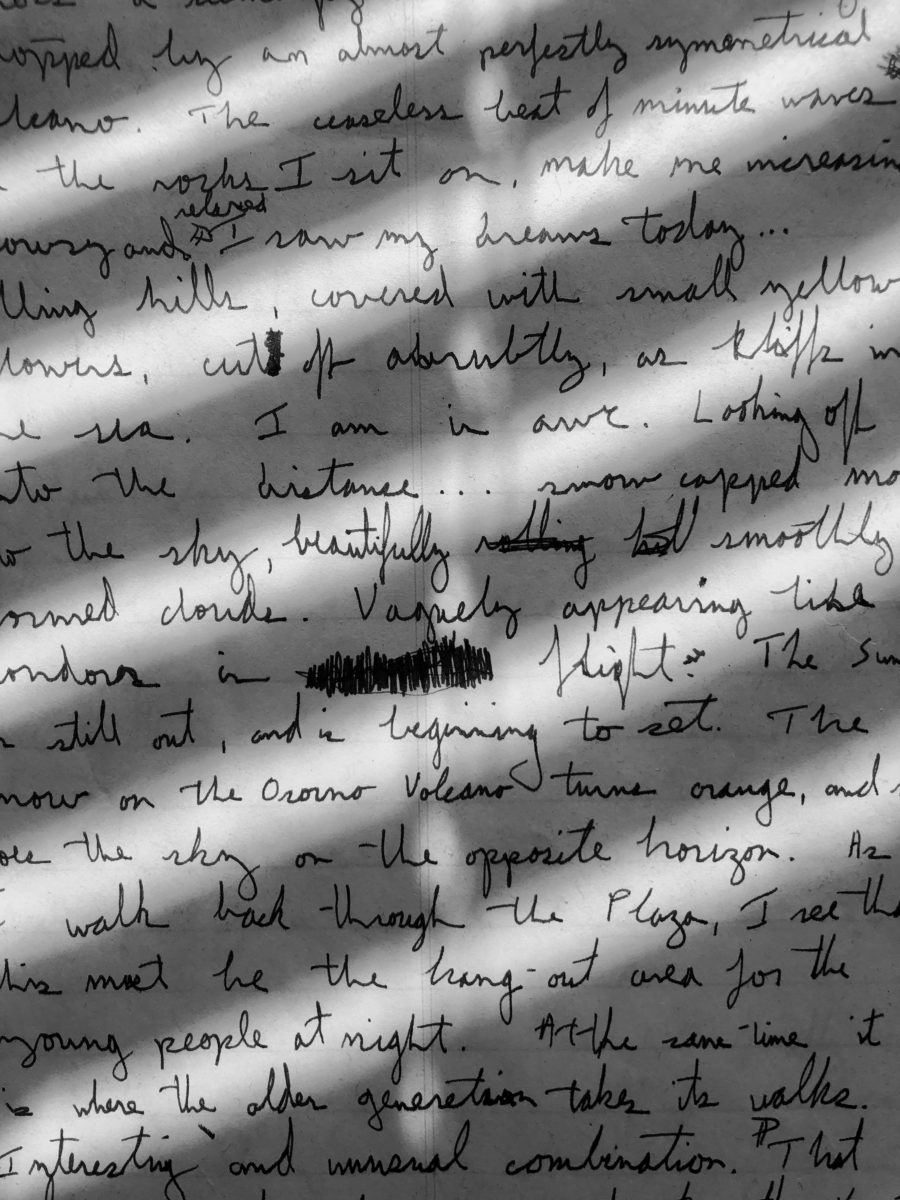 opped by an almost perfectly symmetrical
lcano. The ceaseless beat of minute waves
the rocks I sit on, make me increasin
relaxed
owsy and I saw my dreams today...
lling hills, covered with small yellow
lowers, cut off abrubtly, as kliffs in
he sea. I am in awe. Looking off
nto the distance... snow capped mo
o the sky, beautifully rolling smoothly
ormed clouds. Vaguely appearing like
ondors in flight. The Sun
is still out, and is beginning to set. The
now on the Osorno Volcano turns orange, and s
oes the sky on the opposite horizon. As
I walk back through the Plaza, I see tha
his must be the hang-out area for the
young people at night. At the same time it
is where the older generation takes its walks.
Interesting and unusual combination. That